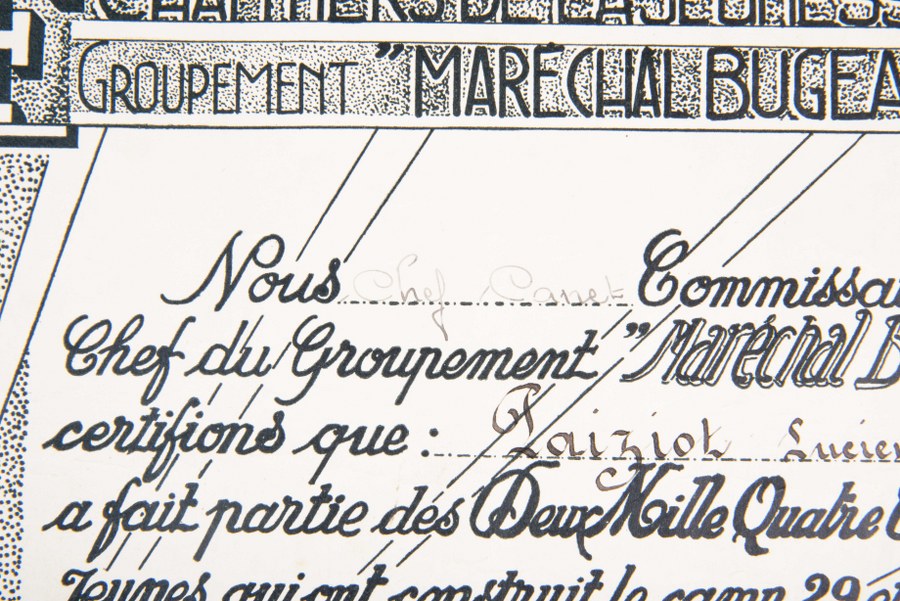 CHANTIERS DE LA JEUNESS
GROUPEMENT "MARÉCHAL BUGEA
Nous Chef Canet Commissai
Chef du Groupement "Maréchal B
certifions que : Paiziot Lucien
a fait partie des Deux Mille Quatre C
Jeunes qui ont construit le camp 29 e